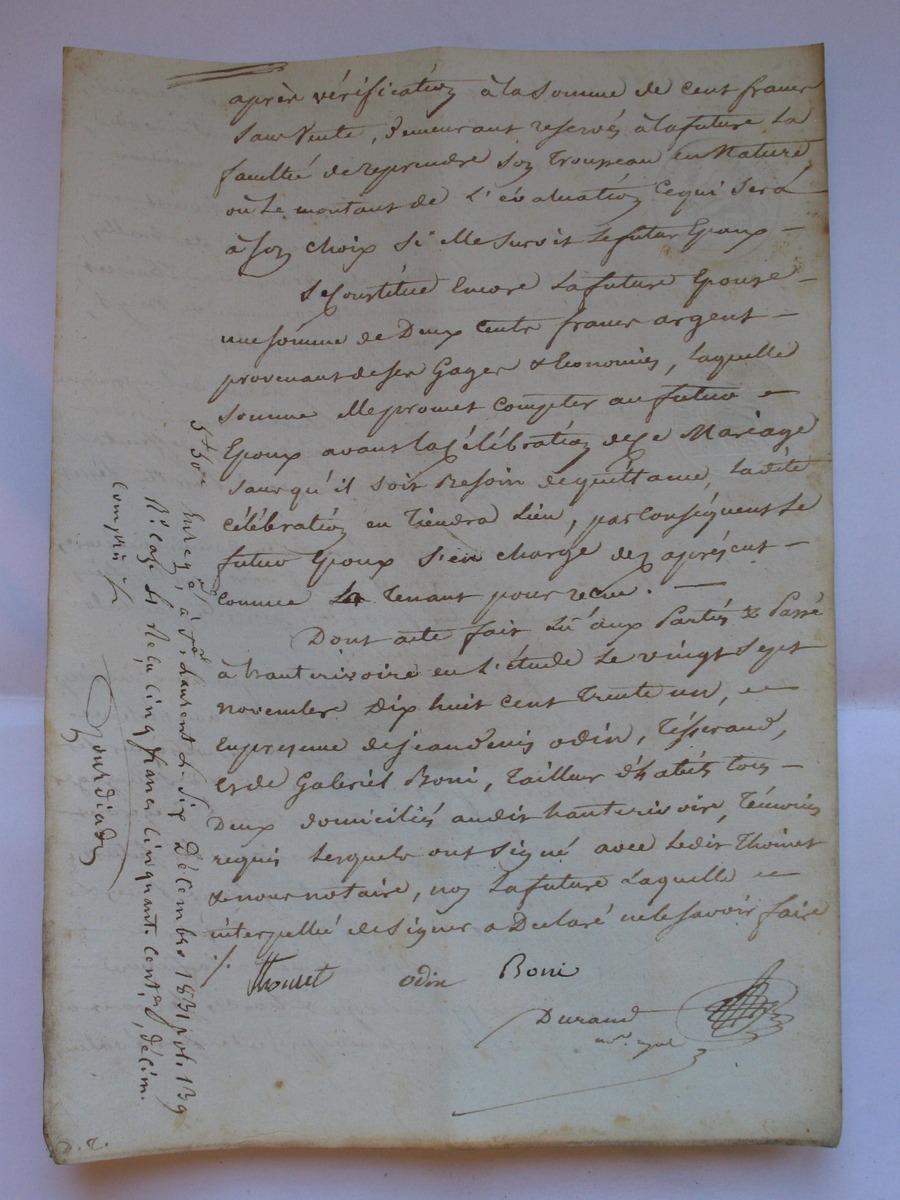 après vérification à la somme de cent francs
sans vente, demeurant reservés à la future la
faculté de reprendre son Troupeau en Nature
ou le montant de l'évaluation ce qui sera
à son choix si elle survit le futur Epoux —
Se Constitue encore la future Epouse —
une somme de Deux Cents francs argent —
provenant de ses Gages & Economies, laquelle
somme elle promet compter au futur
Epoux avant la Célébration de ce Mariage
sans qu'il soit Besoin de quittance, la dite
célébration en Tiendra Lieu, par Conséquent Le
futur Epoux s'en charge dez aprésent —
Comme la Tenant pour recue. —
Dont acte fait Lû aux Parties & Passé
à hauterivoire en L'étude Le vingt Sept
novembre Dix huit Cent Trente un,
En presence de jean denis odin, Tisserand,
et de Gabriel Boni, Tailleur d'habits tous
Deux domiciliés audit hauterivoire, Témoins
requis Lesquels ont Signé avec Ledit Thoinet
& nous notaire, non La future Laquelle
interpellée de Signer a Declaré ne le savoir faire
Thoinet odin Boni
Durand
5f 50c Enreg.é à St Laurent le Six Décembre 1831 vol. 139
Reçu Cinq francs Cinquante Cent.es, décim.
Compris